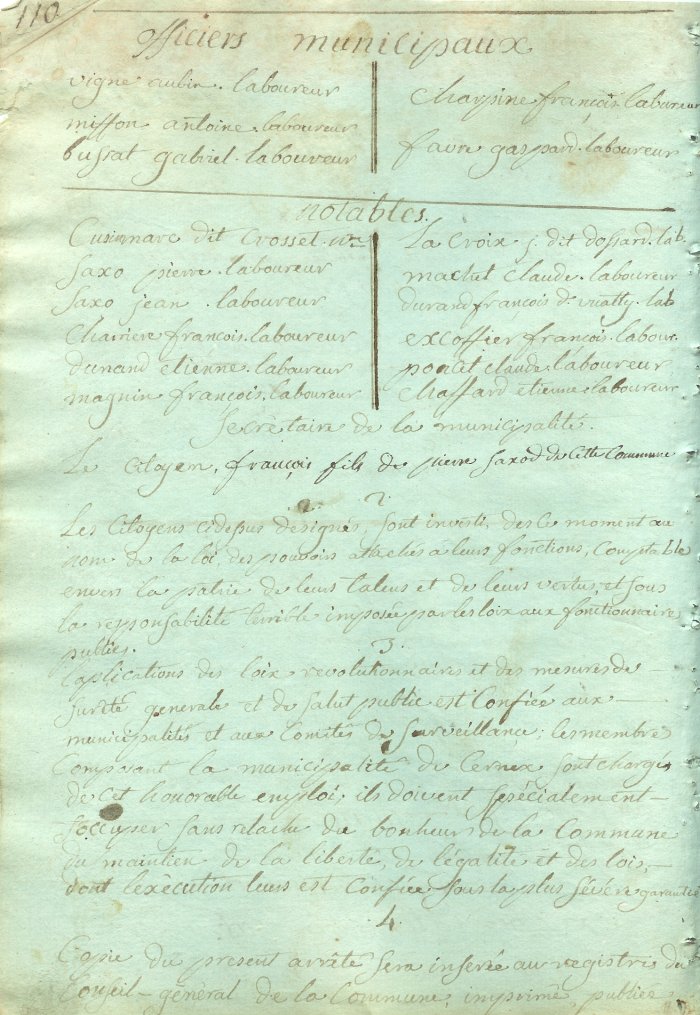 110
officiers municipaux
vigne aubin. laboureur
miffon antoine. laboureur
bussat gabriel. laboureur
Charpine françois. laboureur
favre gaspard. laboureur
notables.
Cusinmarc dit Crosset.
saxo pierre. laboureur
saxo jean. laboureur
Charriere françois. laboureur
dunand etienne. laboureur
magnin françois. laboureur
La Croix j. dit dossard. lab.
machet Claude. laboureur
durand françois d. lab
excoffier françois. labour.
poncet claude. laboureur
Chaffard etienne. laboureur
Secretaire de la municipalité.
Le Citoyen, françois fils de pierre saxod de Cette Commune
2.
Les Citoyens cidepus designés, sont investi, des ce moment au
nom de la loi, des pouvoirs attachés a leurs fonctions, Comptable
envers la patrie de leurs talens et de leurs vertus, et sous
la responsabilité terrible imposée par les loix aux fonctionnaire
publics.
3.
l'aplications des loix revolutionnaires et des mesures de
sureté generale et de salut public est Confiée aux
municipalités et aux Comités de surveillance; les membre
Composant la municipalité de Cernex sont chargés
de Cet honorable emploi; ils doivent spécialement
s'occuper sans relache du bonheur de la Commune
du maintien de la liberté, de légalité et des lois,
dont lexécution leurs est Confiée sous la plus sévère garantie
4.
Copie du present arrêté sera inserée au registre du
Conseil-général de la Commune, imprimé, publiée